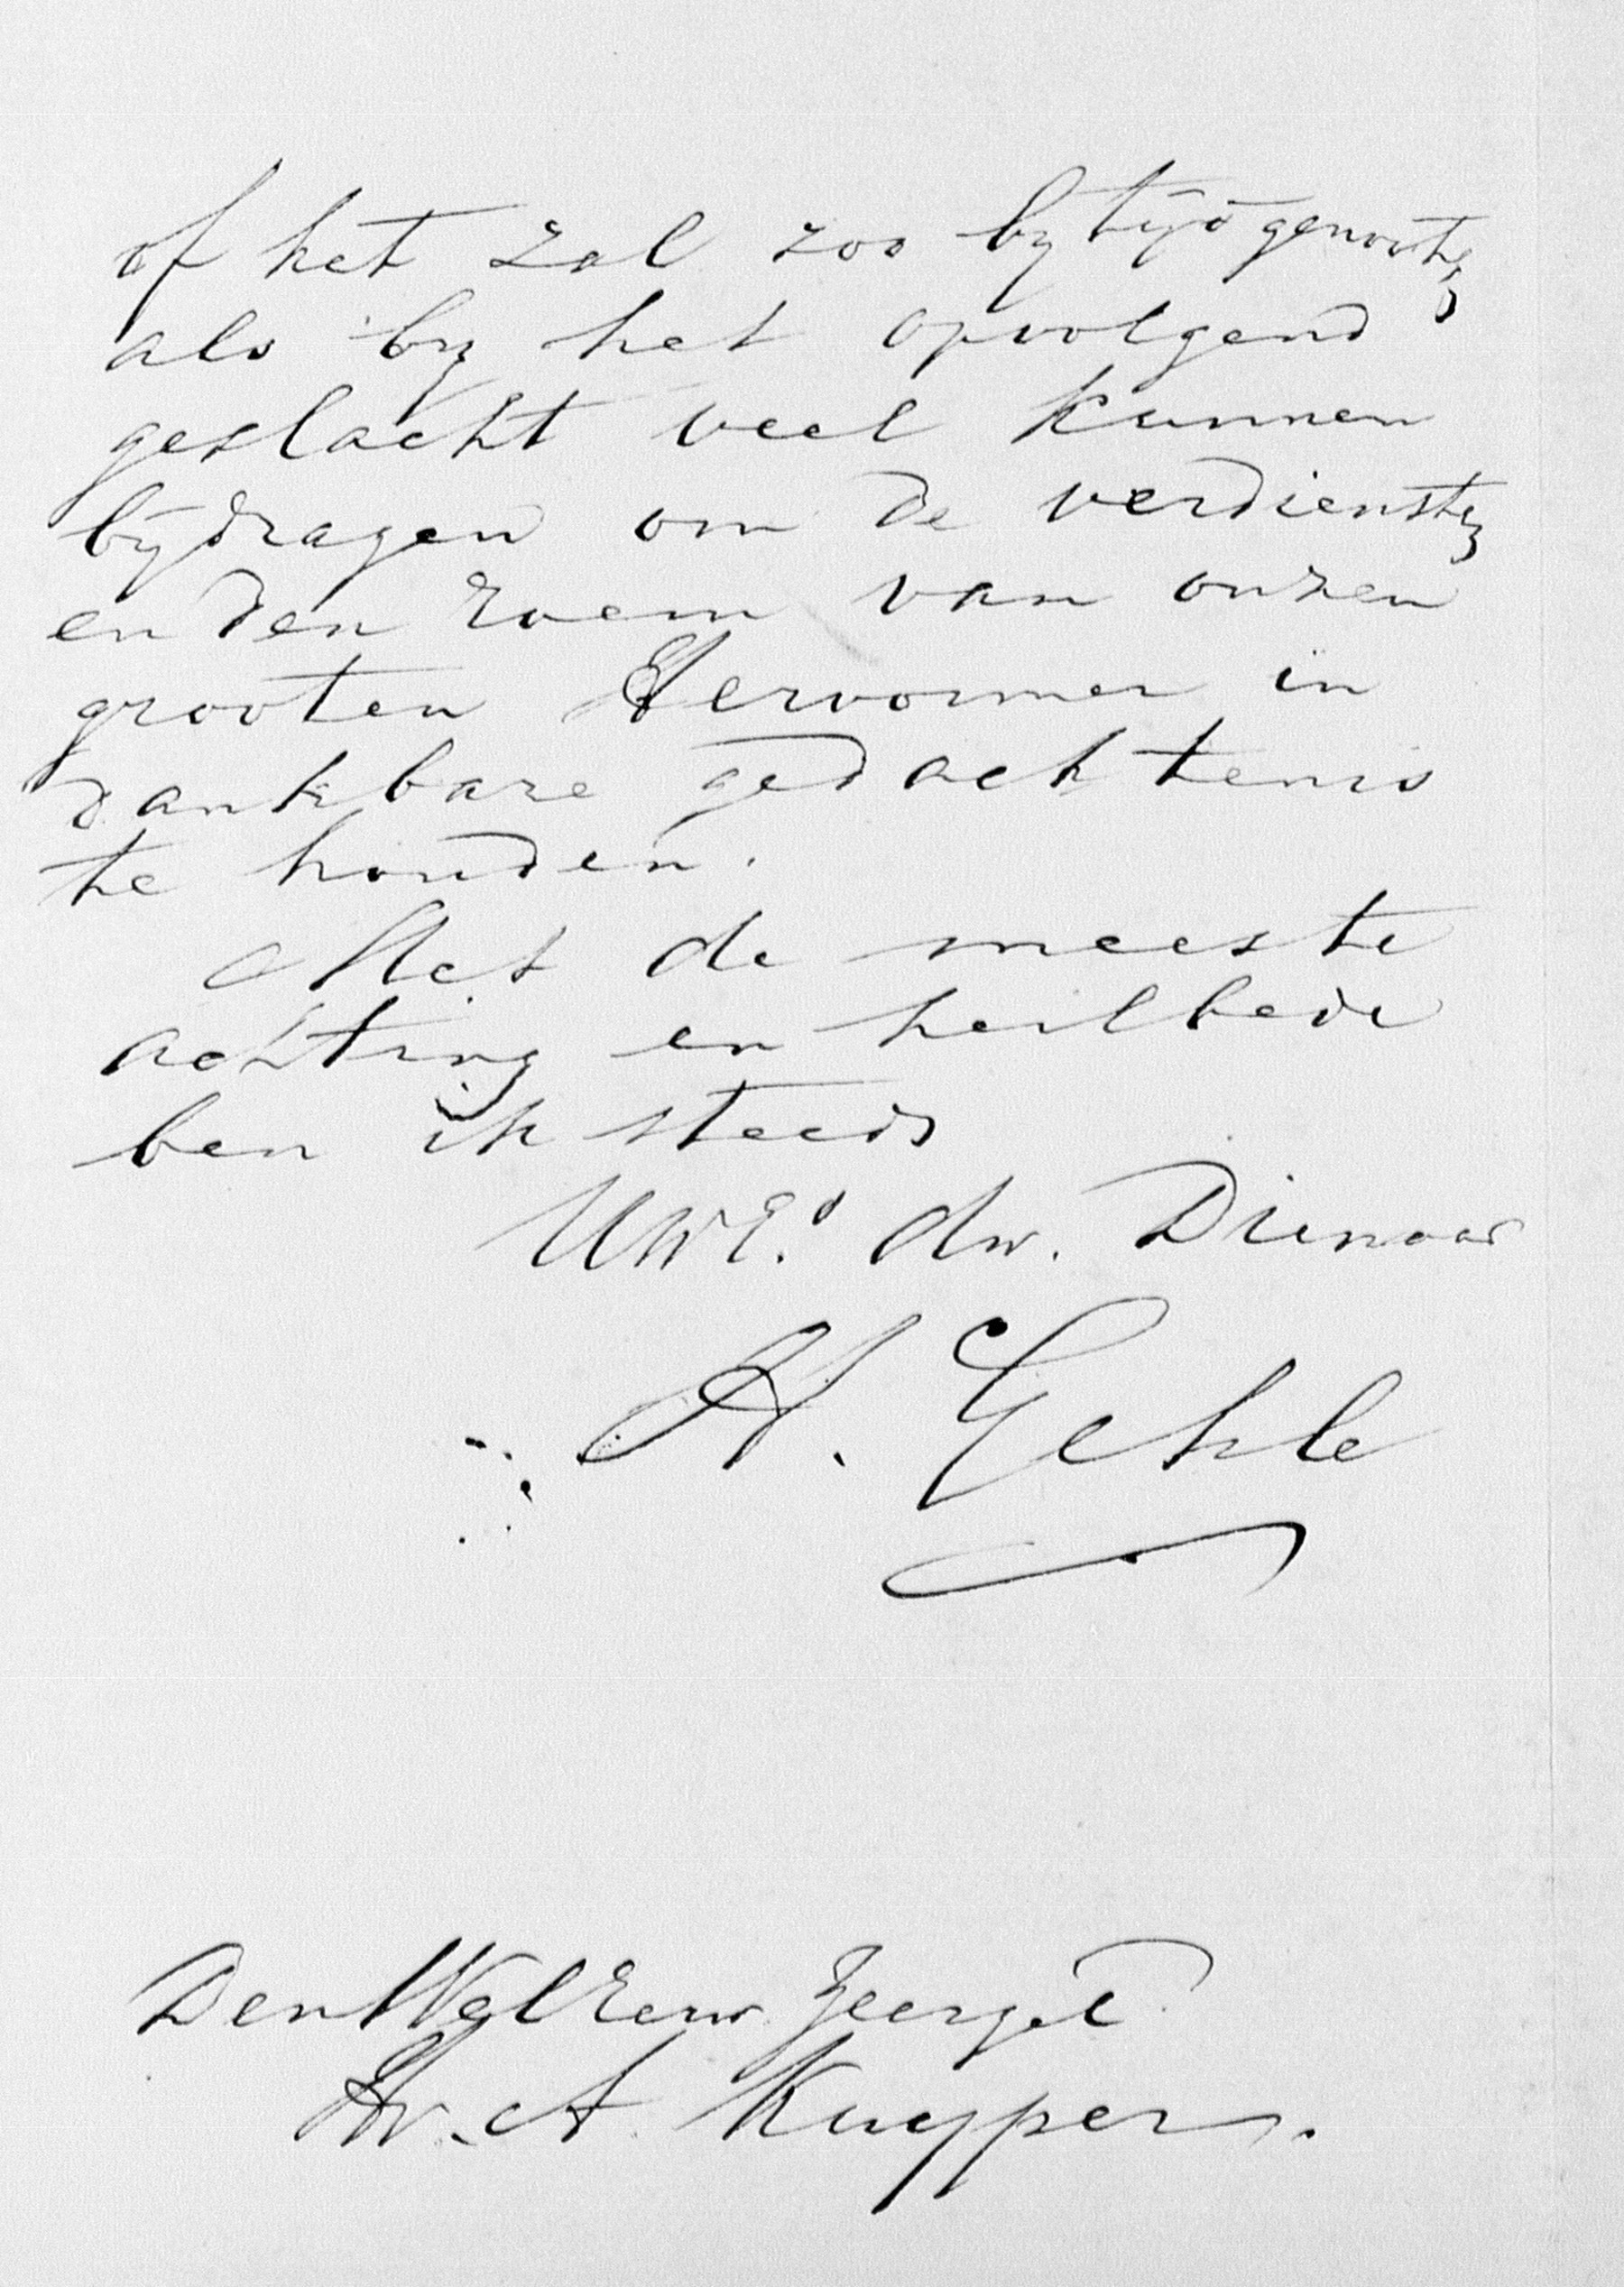 of het zal zoo by tijdgenooten
als by het opvolgend
geslacht veel kunnen
bijdragen om de verdiensten
en den roem van onzen
grooten Hervormer in
dankbare gedachtenis
te houden.
Met de meeste
achting en heilbede
ben ik steeds
UWEd. dw. Dienaar
H. Gehle
Den WelEerw. Zeergel.
Hr. A. Kuyper.